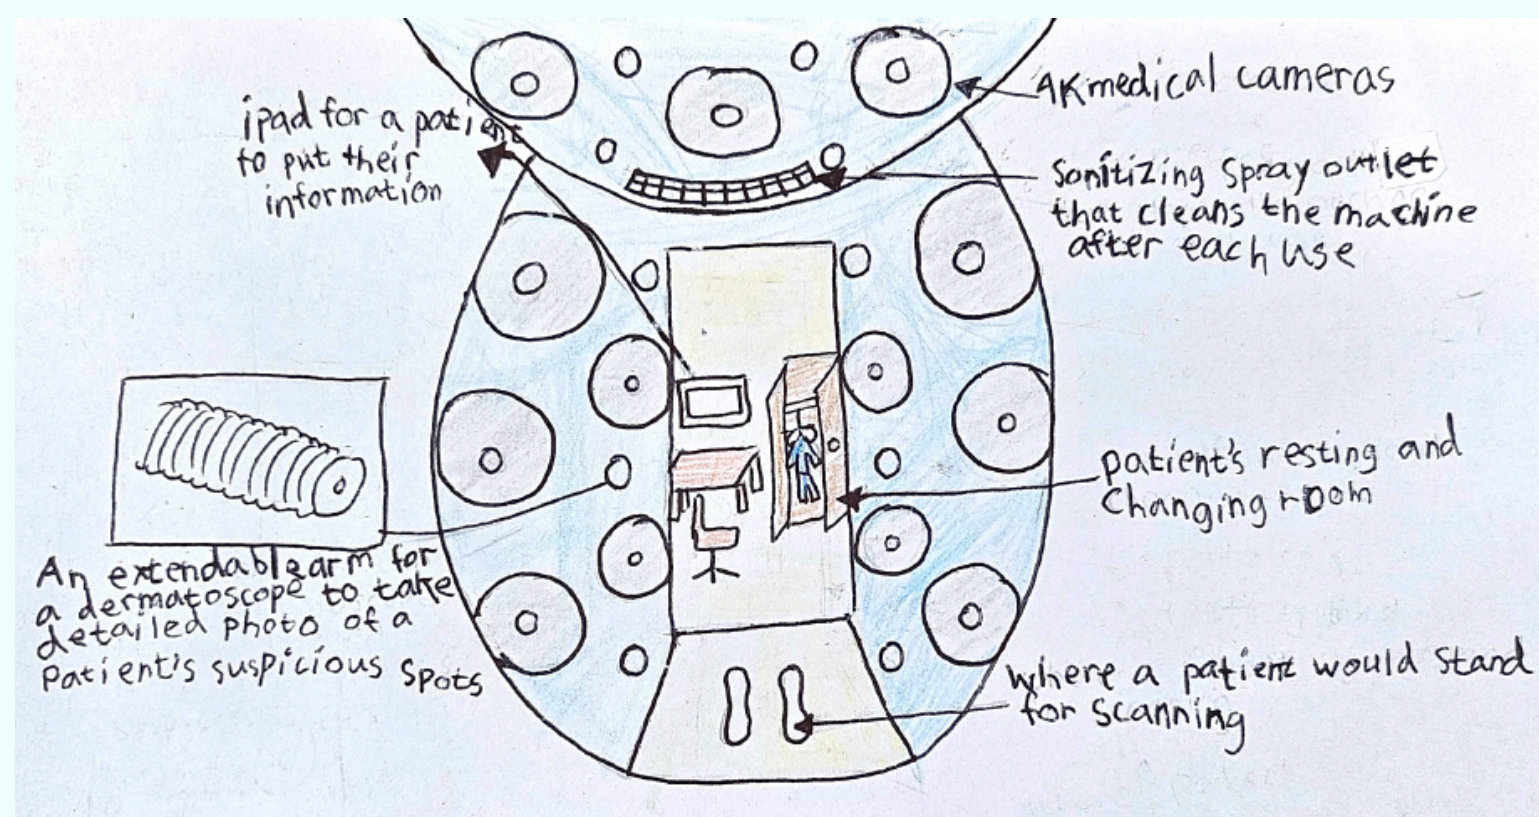 ipad for a patient
to put their
information
4K medical cameras
Sanitizing spray outlet
that cleans the machine
after each use
patient's resting and
Changing room
An extendable arm for
a dermatoscope to take
detailed photo of a
patient's suspicious spots
Where a patient would stand
for scanning